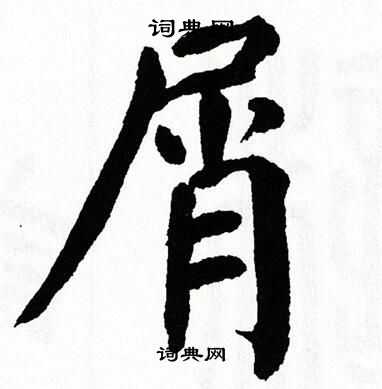 词典网
屑
词典网